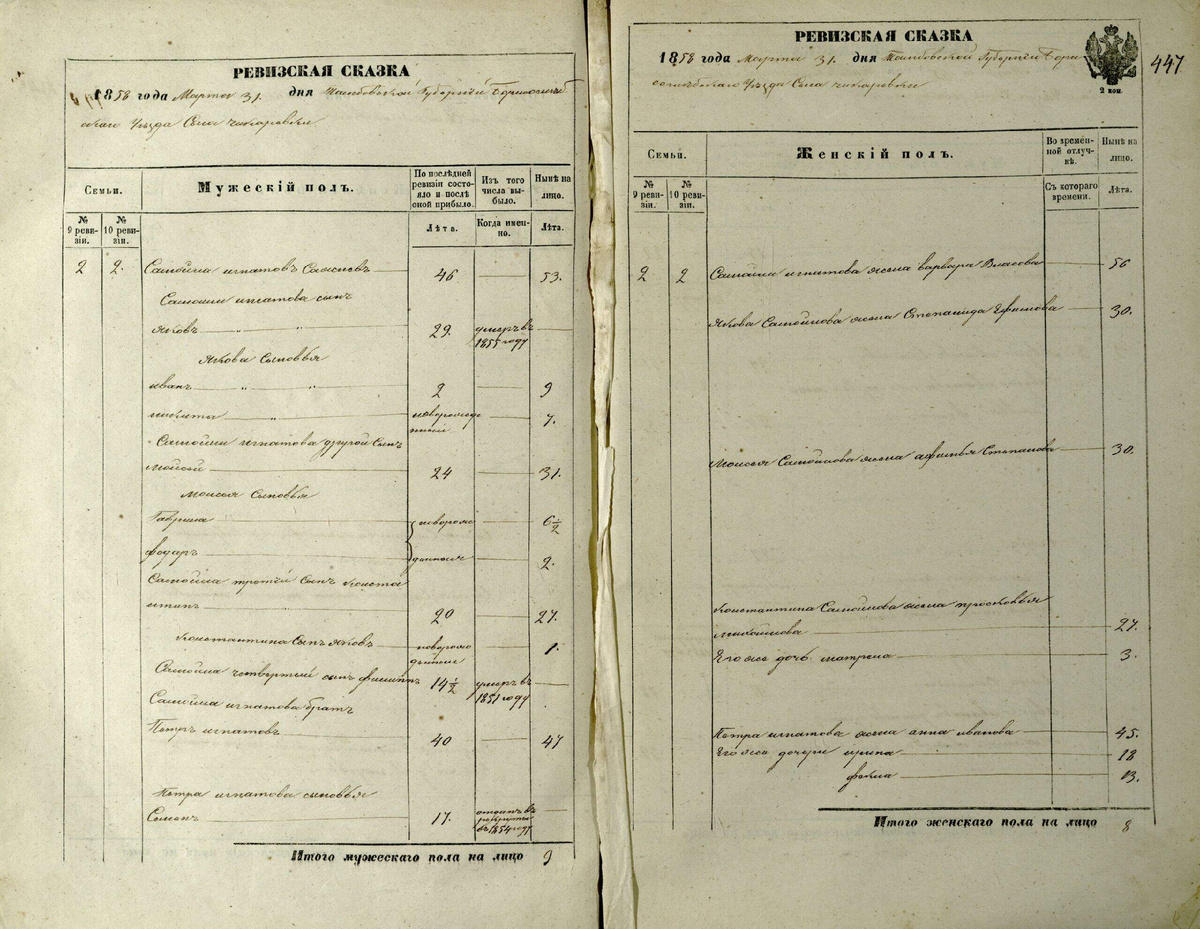 РЕВИЗСКАЯ СКАЗКА
1858 года Марта 31. дня Тамбовской Губерніи Борисоглеб
скаго Уѣзда Села чикаровки
Семьи.
Мужескій полъ.
По послѣдней ревизіи состояло и послѣ оной прибыло.
Изъ того числа выбыло.
Нынѣ на лицо.
№ 9 ревизіи.
№ 10 ревизіи.
Лѣта.
Когда именно.
Лѣта.
2 2. Самойла игнатовъ 46 53.
Самойлы игнатова сынъ
яковъ 29. умеръ въ 1855 году
якова Сыновья
иванъ 2 9
никита новорожденный 7.
Самойлы игнатова другой Сынъ
мойсей 24 31.
моисея Сыновья
Гаврила новорож 6 1/2
федаръ денныя 2.
Самойла третий Сынъ Конста
нтинъ 20 27.
Константина Сынъ яковъ новорожденный 1.
Самойла четвертый сынъ филиппъ 14 1/2 умеръ въ 1851 году
Самойла игнатова братъ
Петръ игнатовъ 40 47
Петра игнатова сыновья
Семенъ 17. отданъ въ рекруты въ 1854 году
Итого мужескаго пола на лицо 9
РЕВИЗСКАЯ СКАЗКА
447
1858 года Марта 31. дня Тамбовской Губерніи Бори
соглебскаго Уѣзда Села чикаровки
2 коп.
Семьи.
Женскій полъ.
Во временной отлучкѣ.
Нынѣ на лицо.
№ 9 ревизіи.
№ 10 ревизіи.
Съ котораго времени.
Лѣта.
2 2 Самойлы игнатова жена варвара Власова 56
Якова Самойлова жена Степанида Ефимова 30.
Моисея Самойлова жена афимья Степанова 30.
Константина Самойлова жена просковья
27.
Его же дочь матрена 3.
Петра игнатова жена анна иванова 45.
Его же дочери ирина 18
фекла 13.
Итого женскаго пола на лицо 8